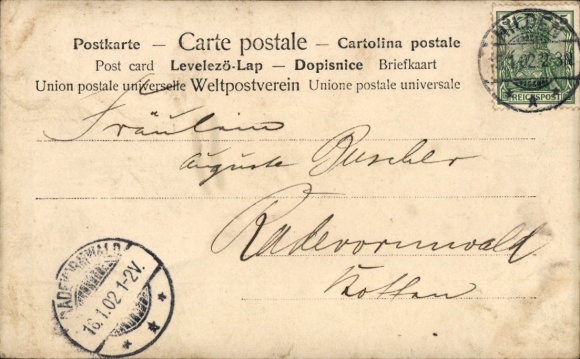 Postkarte — Carte postale — Cartolina postale
Post card — Levelező-Lap — Dopisnice — Briefkaart
Union postale universelle Weltpostverein Unione postale universale
HILDEN
1.02 2-3N
REICHSPOST
Fräulein
Auguste Buscher
Radevormwald
RADEVORMWALD
16.1.02 1-2V.